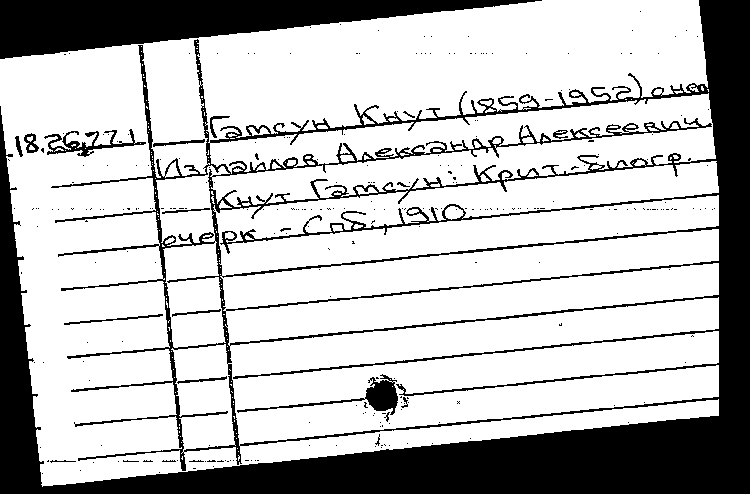 18.26.77.1 Гамсун, Кнут (1859-1952), о нем
Измайлов, Александр Алексеевич.
Кнут Гамсун: Крит.-биогр.
очерк. - Спб., 1910.